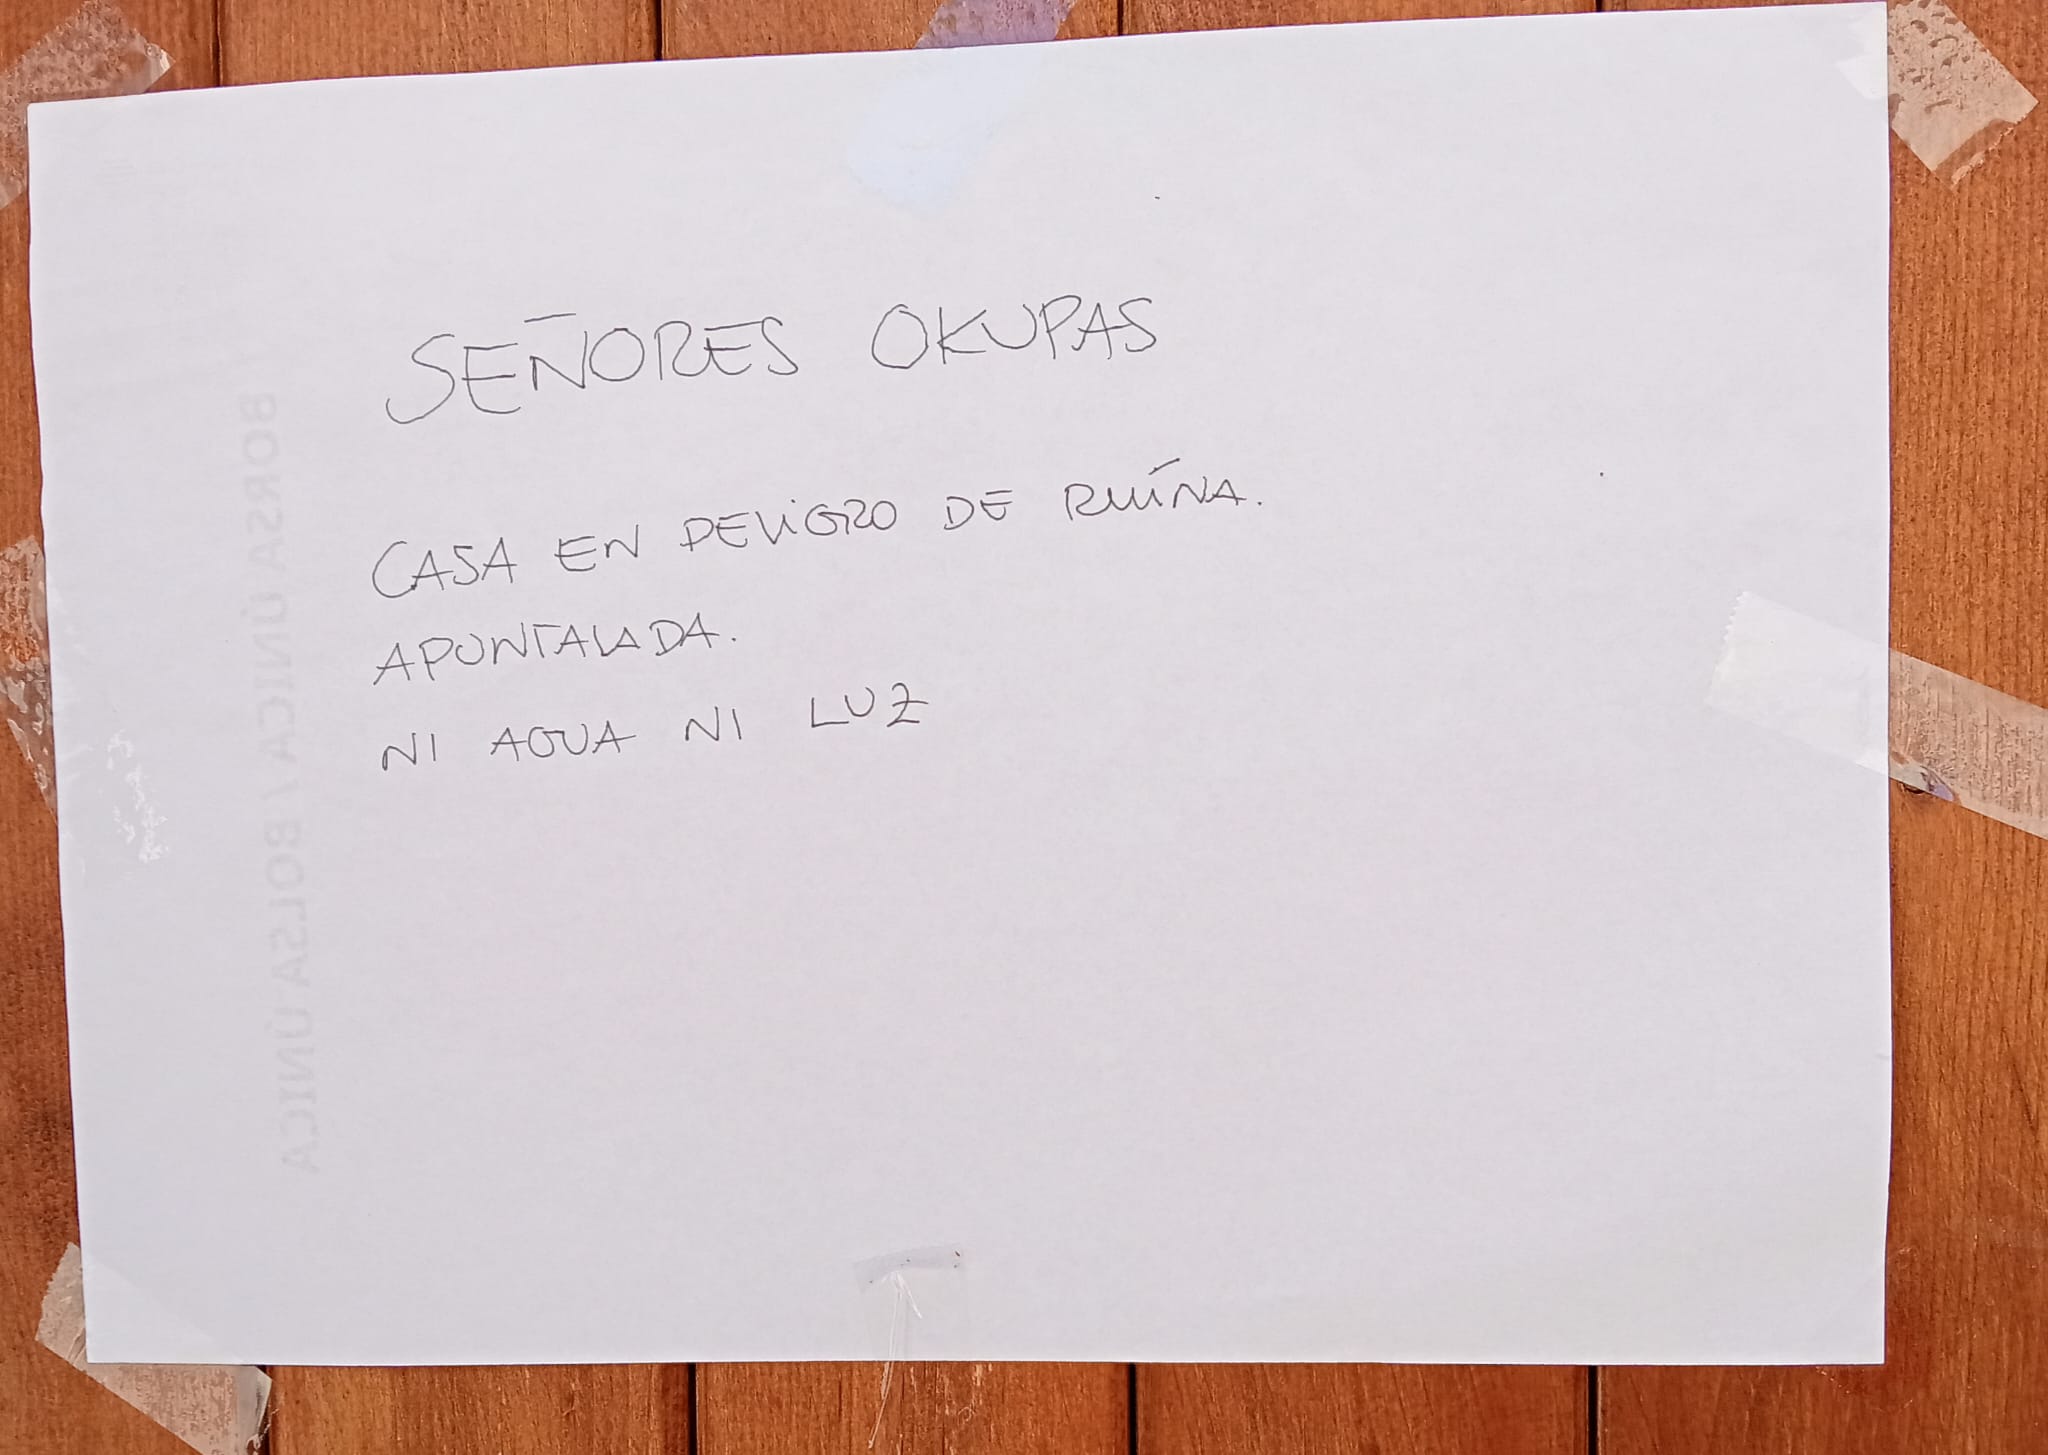 SEÑORES OKUPAS
CASA EN PELIGRO DE RUÍNA.
APUNTALADA.
NI AGUA NI LUZ
BORSA ÚNICA / BOLSA ÚNICA